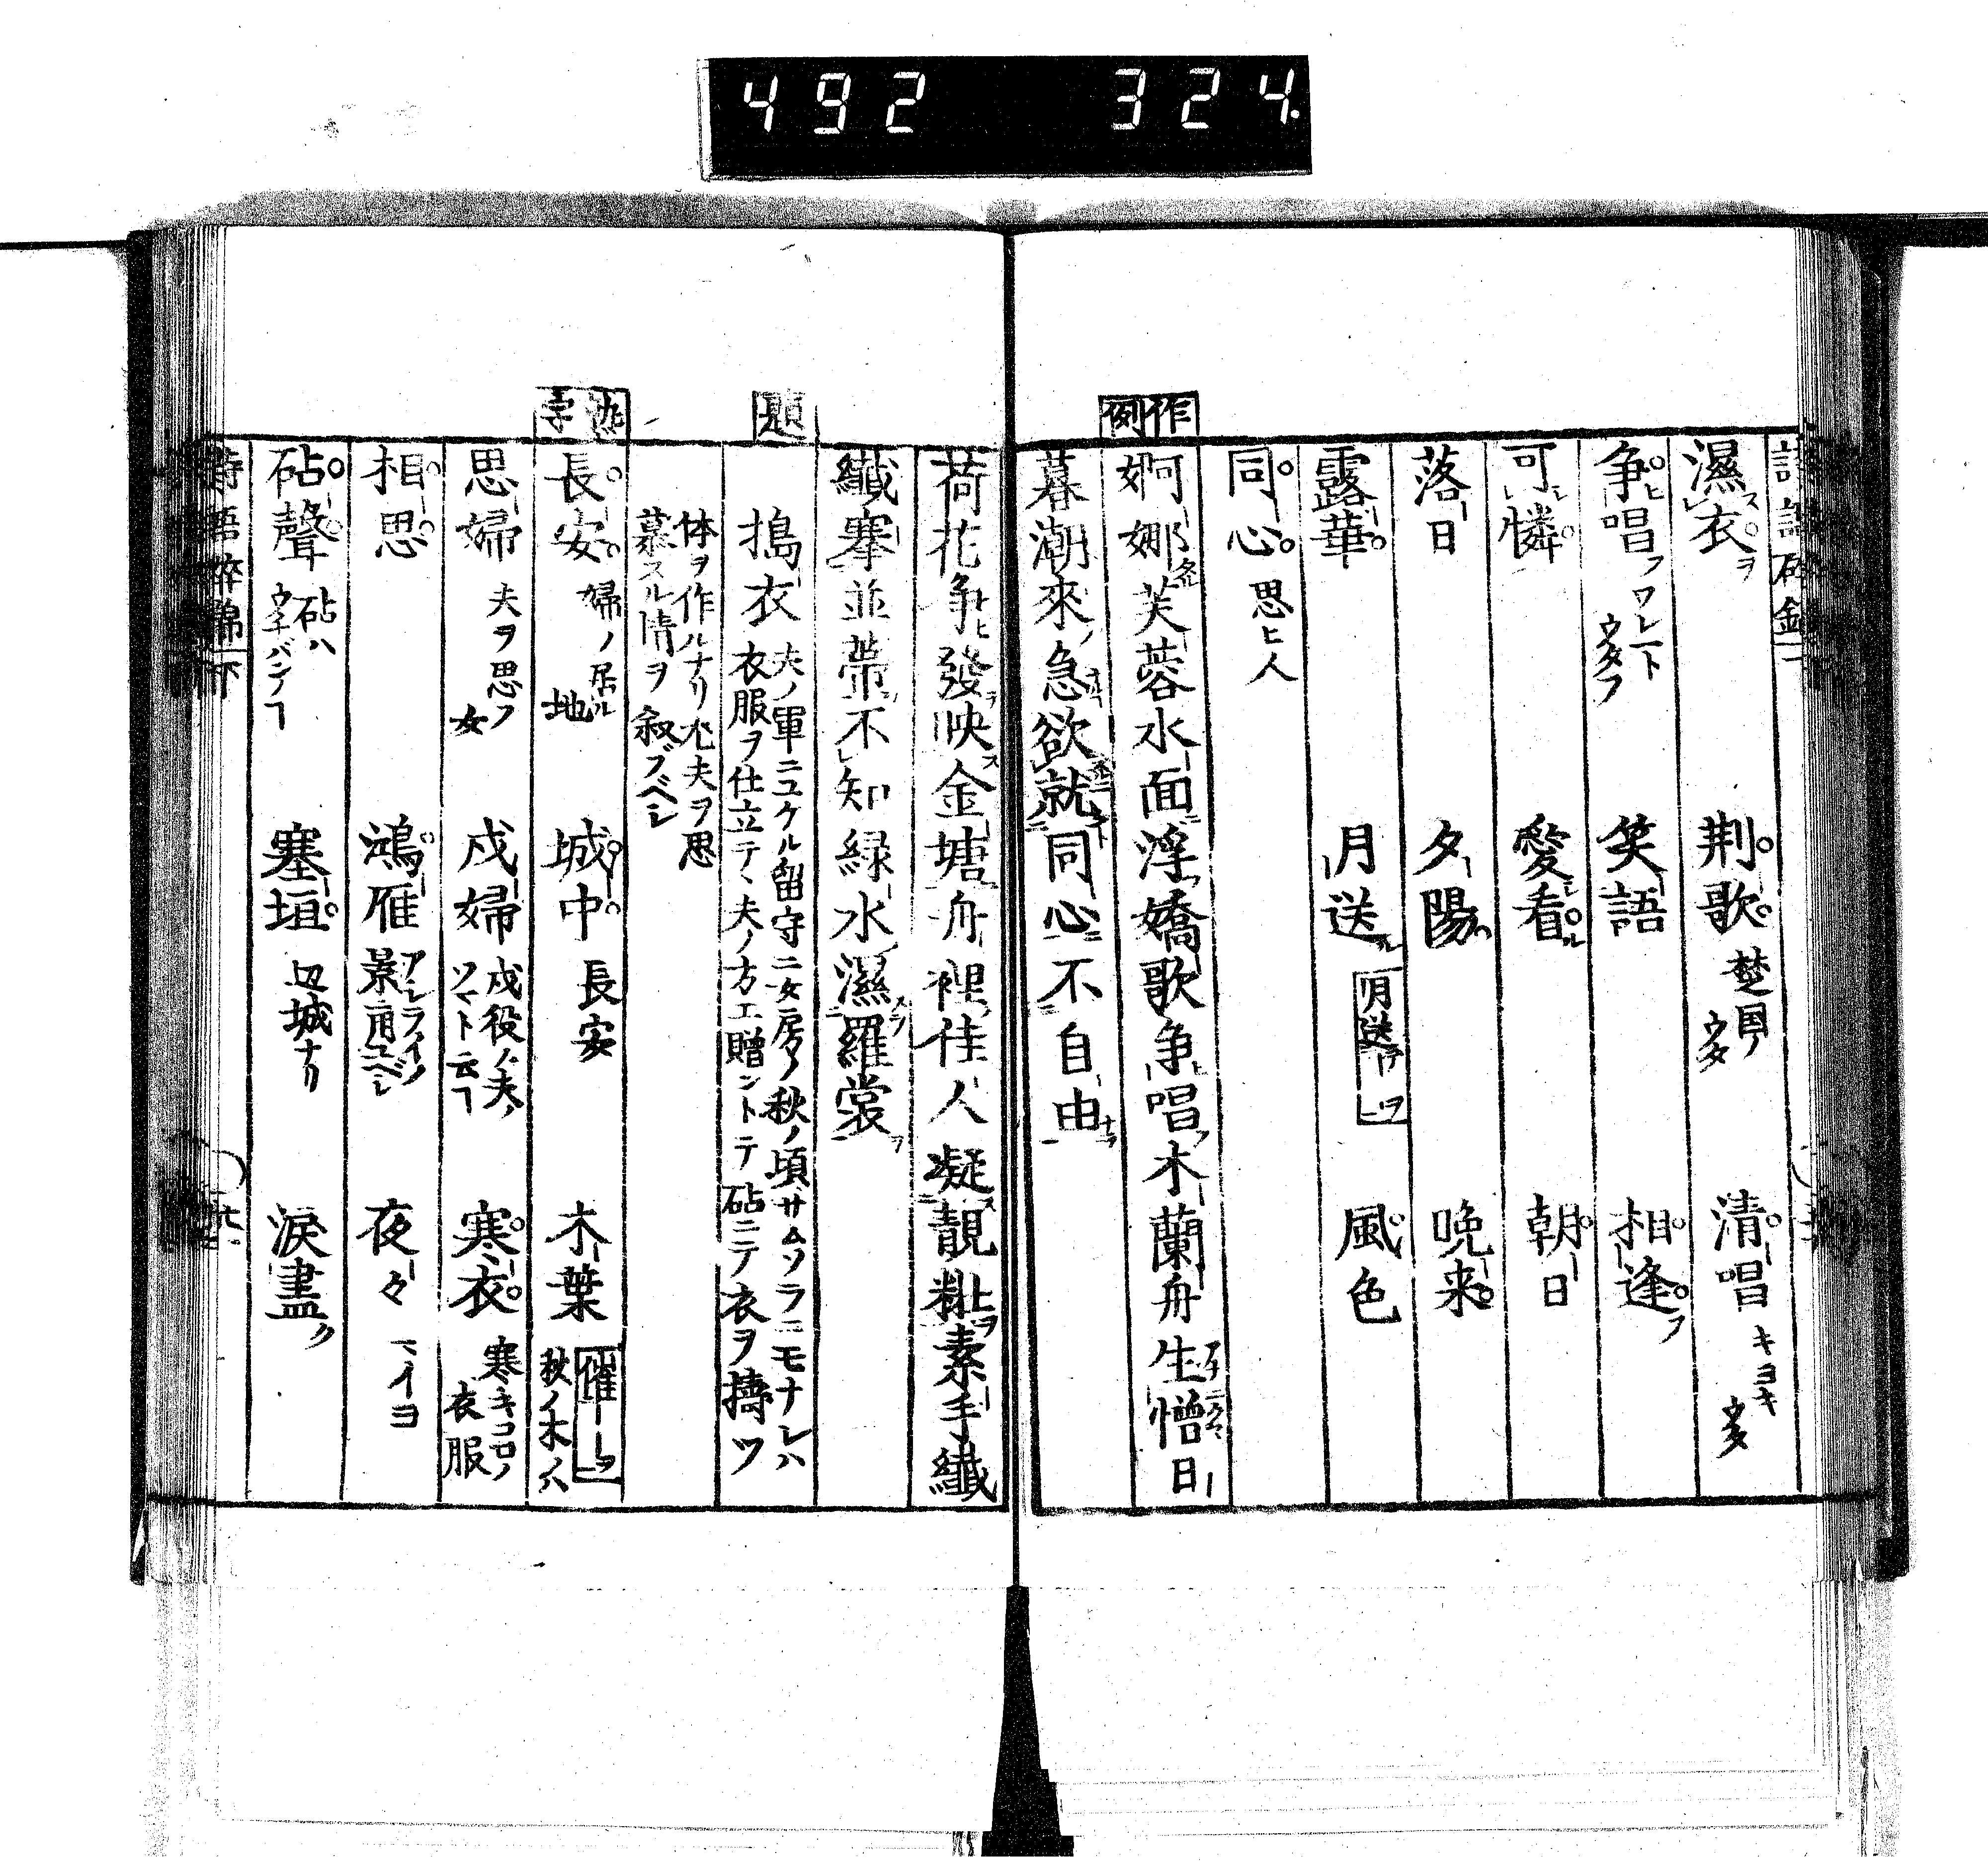 492 324.
濕衣ヲ 荆歌 楚国ノウタ 清唱 キヨキウタ
争ヒ唱フ ワレ一トウタフ 笑語 相逢フ
可憐 愛看ル 朝日
落日 夕陽 晩来
露華 月送ル 風色
同心 思ヒ人
作例
婀娜芙蓉水面浮嬌歌争唱木蘭舟生憎日
暮潮來急欲就同心不自由
荷花争發映金塘舟裡佳人凝靚粧素手纖
纖搴並蔕不知緑水濕羅裳
題
搗衣 夫ノ軍ニユケル留守ニ女房ノ秋ノ頃サムソラニモナレハ
衣服ヲ仕立テヽ夫ノ方エ贈ントテ砧ニテ衣ヲ擣ツ
体ヲ作ルナリ尤夫ヲ思
慕スル情ヲ叙ブベシ
長安 婦ノ居ル地 城中 長安 木葉 秋ノ木ノハ
思婦 夫ヲ思フ女 戍婦 戍役ノ夫ノツマト云フ 寒衣 寒キコロノ衣服
相思 鴻雁 夜々 マイヨ
砧聲 砧ハウチバンノフ 塞垣 辺城ナリ 涙盡ク
詩語碎錦 下